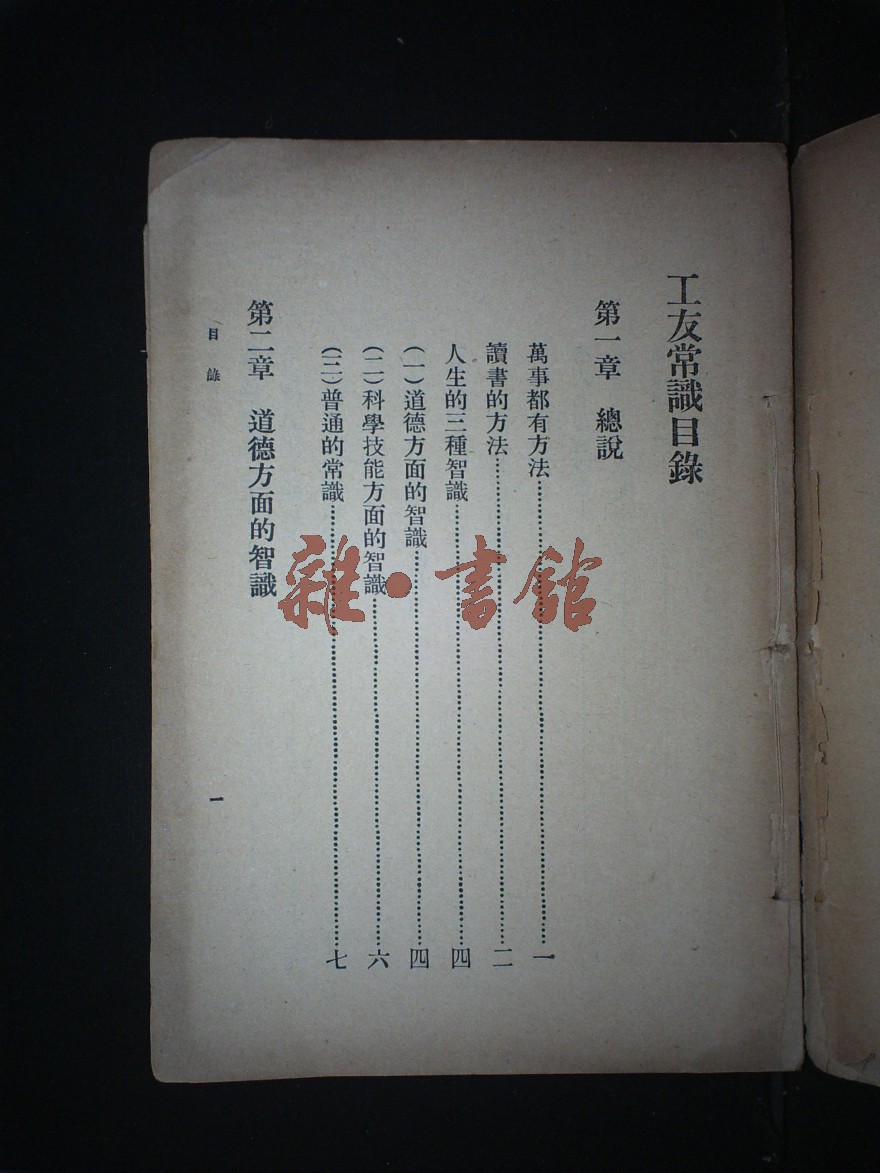 工友常識目錄
第一章　總說
萬事都有方法……一
讀書的方法……二
人生的三種智識……四
(一)道德方面的智識……四
(二)科學技能方面的智識……六
(三)普通的常識……七
第二章　道德方面的智識
目錄
一
雜·書館